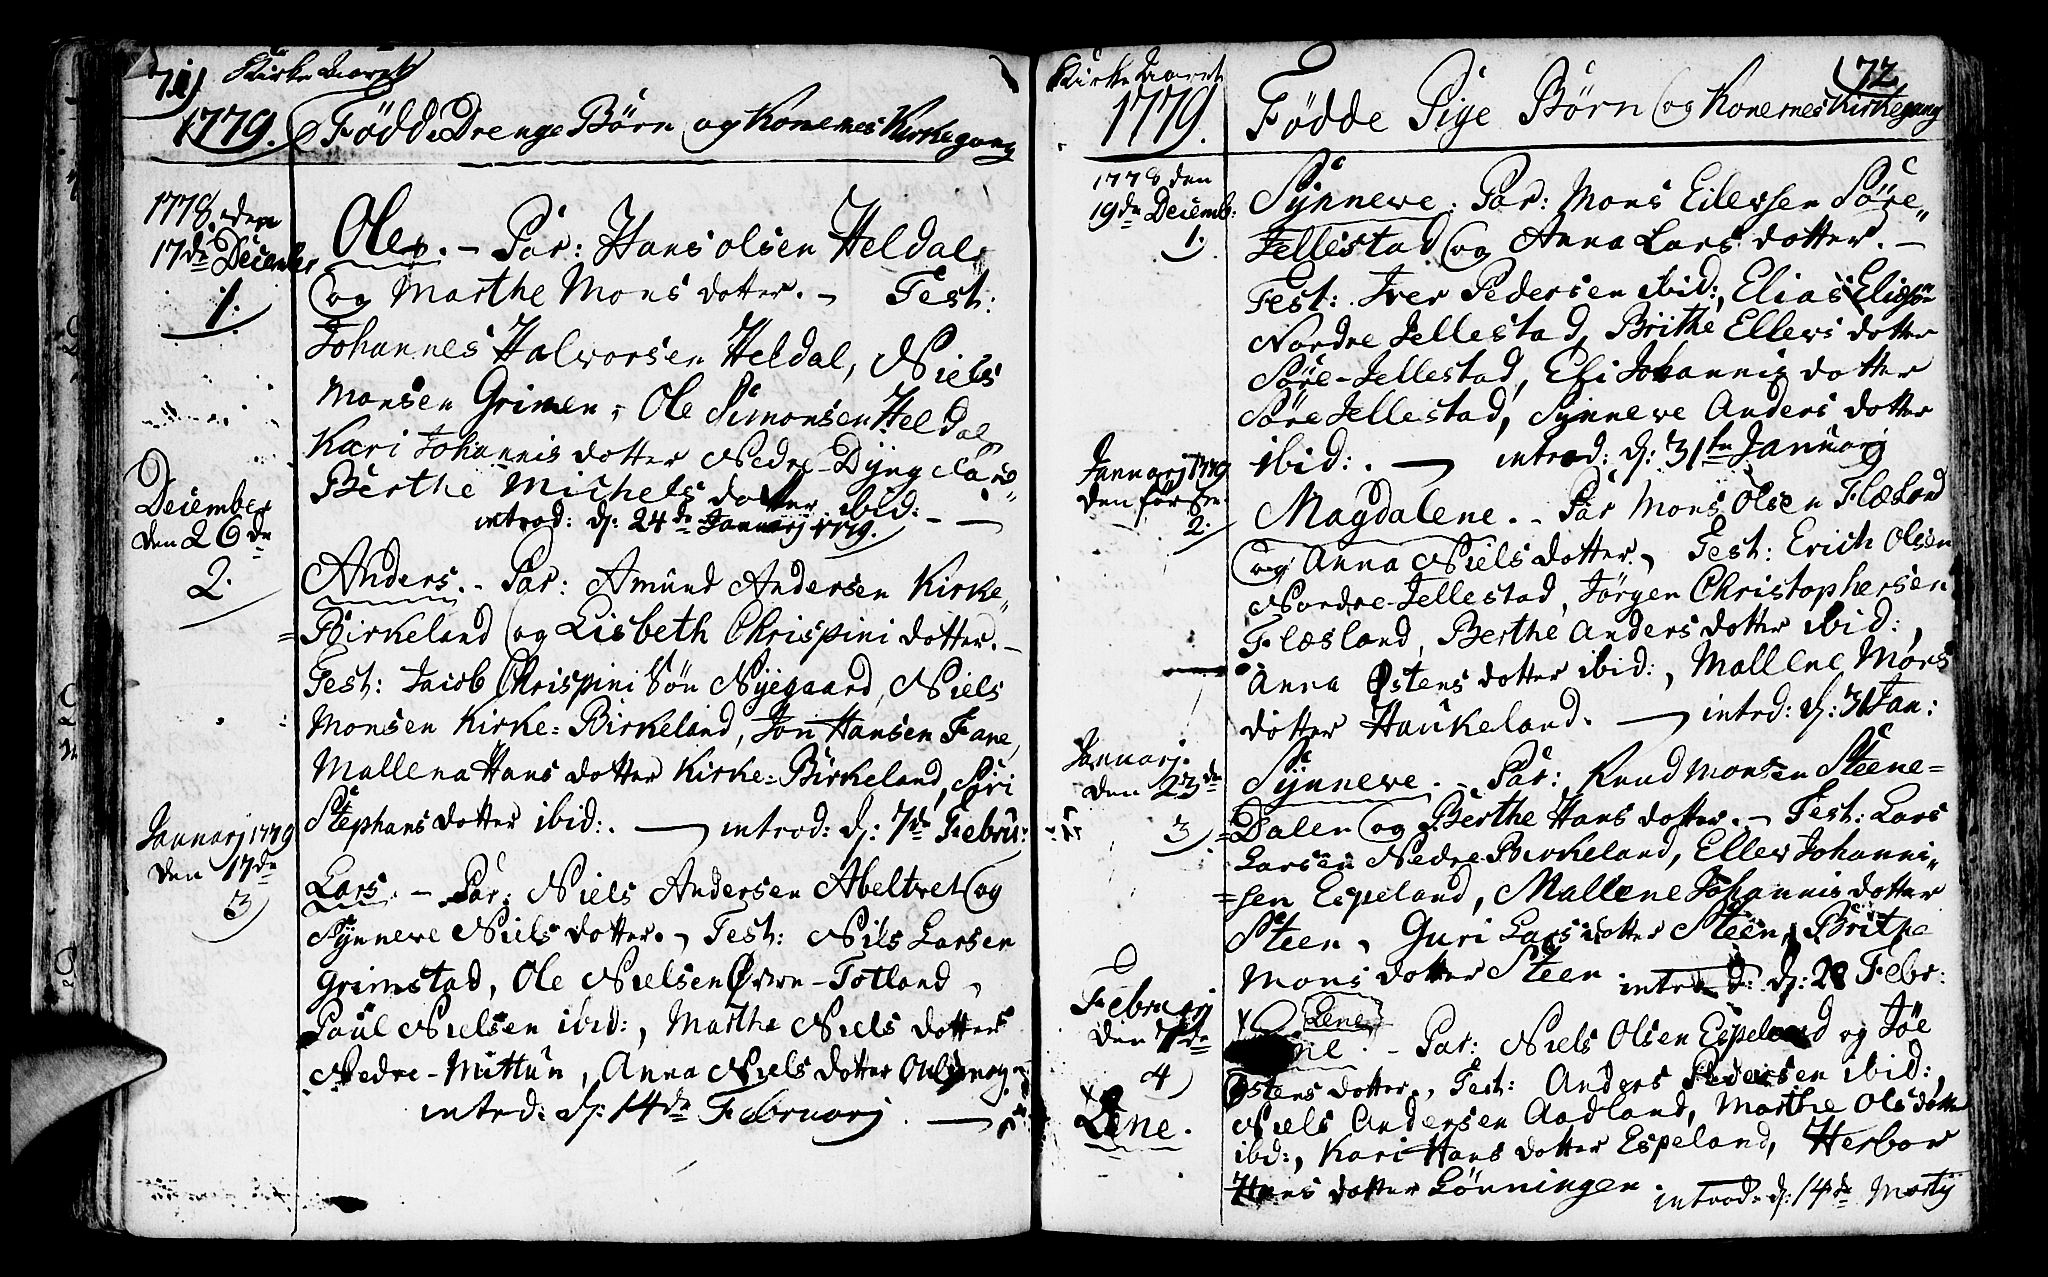 71) Kirke Aaret
1779. Födde Drenge Börn og Konernes Kirkegang
1778, den
17de Decembr
1.
Ole. - Par: Hans olsen Heldal
og Marthe Mons dotter. - Test:
Johannes Halvorsen Heldal, Niels
Monsen Grimen, Ole Simonsen Heldal
Kari Johannis dotter Nedre-Dyngeland
Berthe Michels dotter ibid: -
introd: d: 24de Januarj 1779.
December
den 26de
2.
Anders. - Par: Amund Andersen Kirke„
=Birkeland og Lisbeth Chrispini dotter. -
Test: Jacob Chrispini Sön Nyegaard, Niels
Monsen Kirke=Birkeland, Jon Hansen Fane,
Mallena Hans dotter Kirke=Birkeland, Siri
Stephans dotter ibid: . - introd: d: 7de Febru:
Januarj 1779
den 17de
3)
Lars. - Par: Niels Andersen Abeltvet og
Synneve Niels dotter. - Test: Nils Larsen
Grimstad, Ole Nielsen Övre-Totland,
Paul Nielsen ibid:, Marthe Niels dotter
Nedre-Mittun, Anna Niels dotter
intrd: d: 14de Februarj. -
72
Kirke Aaret
1779. Födde Pige Börn og Konernes Kirkegang
1778 den
19de Decemb:
1.
Synneve. Par: Mons Eilersen Söre„
Jellestad og Anna Lars dotter. -
Test: Iver Pedersen ibid:, Elias Eliasön
Nordre Jellestad, Brithe Ellers dotter
Söre-Jellestad, Eli Johannis dotter
Söre Jellestad, Synneve Anders dotter
ibid: . - introd: d: 31te Januarj
Januarj 1779
den förste
2.
Magdalene. - Par Mons Olsen Flæsland
og Anna Niels dotter. Test: Erich Olsen
Nordre-Jellestad, Jörgen Christophersen
Flæsland, Berthe Anders dotter ibid:,
Anna Östens dotter ibid:, Mallene Mons
dotter Haukeland. - intrd: d: 31 Jan:
Januarj.
den 23de
3)
Synneve. - Par: Knud Monsen Steene=
=Dalen og Berthe Hans dotter. - Test: Lars
Larsen Nedre Birkeland, Eller Johanni„
=sen Espeland, Mallene Johannis dotter
Steen, Guri Lars dotter Steen, Brithe
Mons dotter Steen intrd: d: 28 Febr:
Februarj
den 7de
4)
× Lene.
× Lene
. - Par: Niels Olsen Espeland og Föe
Östens dotter., Test: Anders Pedersen ibid:,
Niels Andersen Aadland, Marthe Ols dotter
ibd:, Kari Hans dotter Espeland, Herbor
Hans dotter Lönningen introd: d: 14de Martij